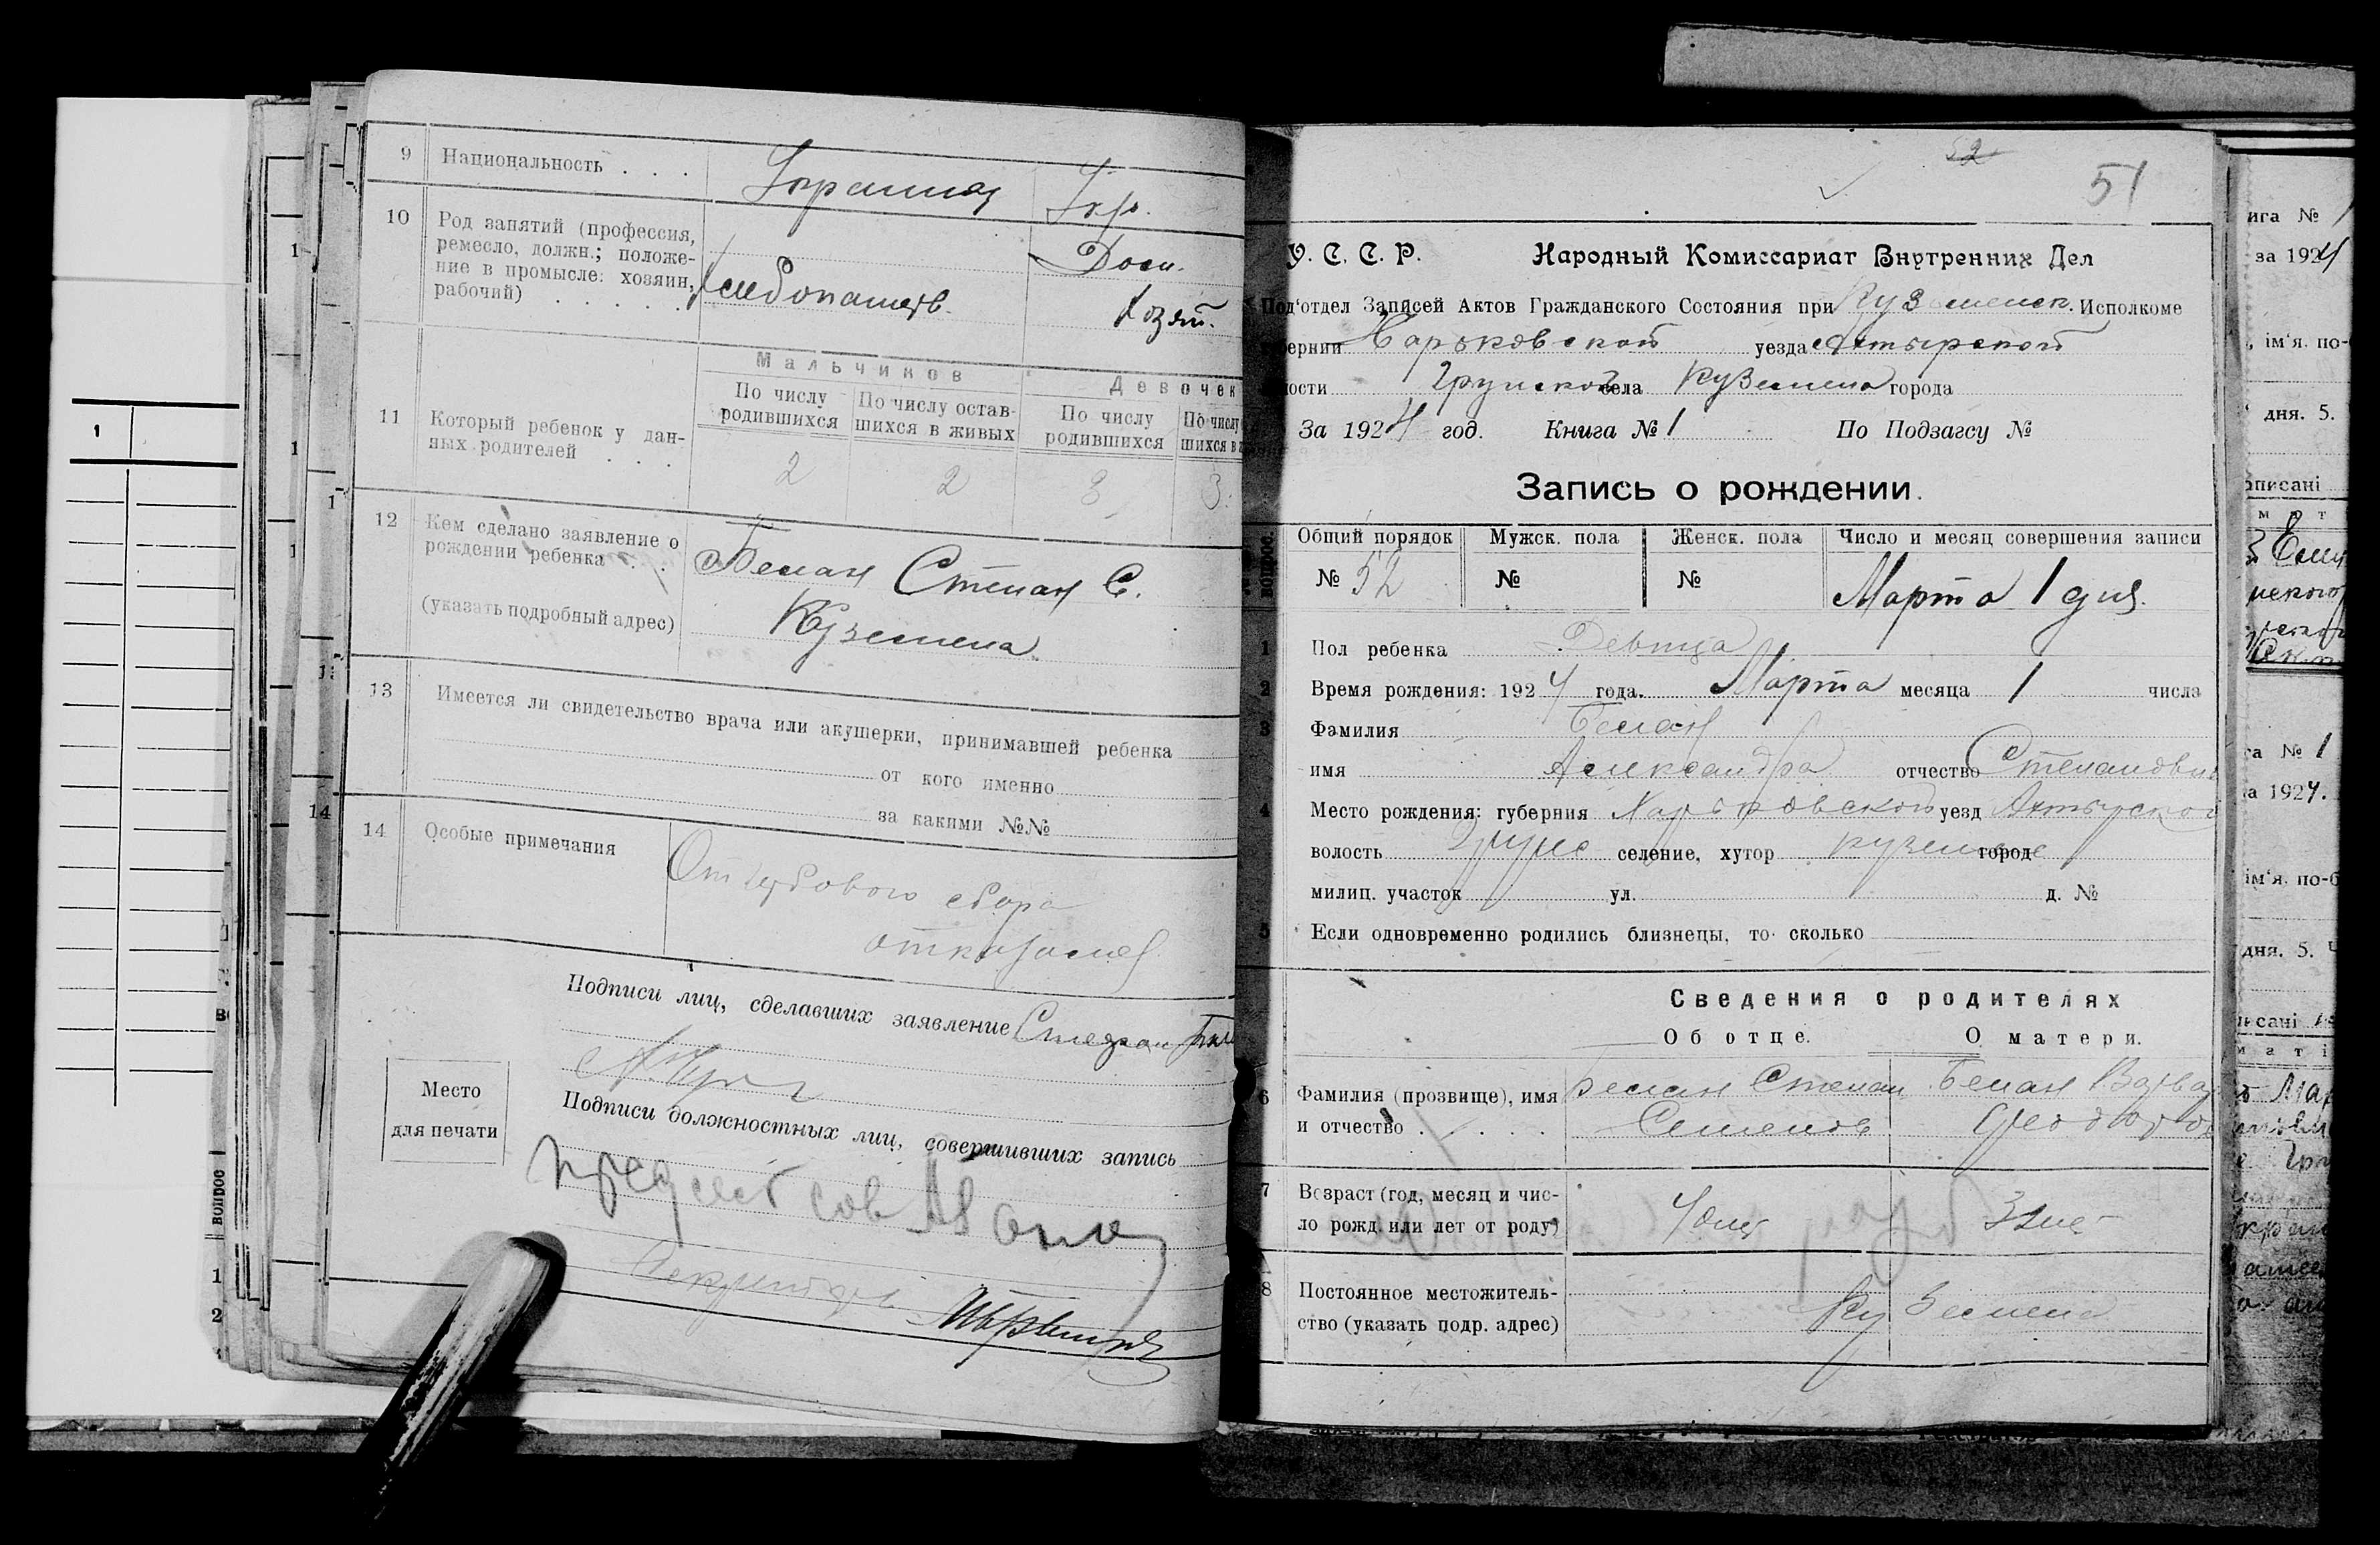 9 Национальность . . . Украинец Укр.
10 Род занятий (профессия,
ремесло, должн.; положе-
ние в промысле: хозяин,
рабочий) . . . . .
хлебопашецъ. Дом.
Хозяй.
Мальчиков Девочек
По числу родившихся По числу остав- шихся в живых По числу родившихся По числу шихся в
11 Который ребенок у дан-
ных родителей . . .
2 2 3 3.
12 Кем сделано заявление о
рождении ребенка . .
(указать подробный адрес)
Белан Степан С.
Куземена
13 Имеется ли свидетельство врача или акушерки, принимавшей ребенка
от кого именно
за какими №№
14 Особые примечания
От сбора
отказался
Подписи лиц, сделавших заявление Степан
Место
для печати
Подписи должностных лиц, совершивших запись
Секретарь
вопрос
1
2
52
51
У. С. С. Р. Народный Комиссариат Внутренних Дел
Под'отдел Записей Актов Гражданского Состояния при Куземенск. Исполкоме
бернии Харьковской уезда Ахтырской
ости Грунской села Куземена города
За 1924 год. Книга № 1 По Подзагсу №
Запись о рождении.
Общий порядок Мужск. пола Женск. пола Число и месяц совершения записи
№ 52 № № Марта 1 дня.
1 Пол ребенка Девица
2 Время рождения: 1924 года. Марта месяца 1 числа
3 Фамилия Белан
имя Александра отчество Степановна
4 Место рождения: губерния Харьковской уезд Ахтырской
волость Грунс селение, хутор Куземене город
милиц. участок ул. д. №
5 Если одновременно родились близнецы, то сколько
Сведения о родителях
Об отце. О матери.
6 Фамилия (прозвище), имя Белан Степан Белан Варвар
и отчество . . . . . Семенов Феодоров
7 Возраст (год, месяц и чис-
ло рожд. или лет от роду)
8 Постоянное местожитель-
ство (указать подр. адрес)
Куземена
ига № 1
за 1924
ім'я. по-
дня. 5.
писані
га № 1
а 1924.
ім'я. по-б
дня. 5. Ч